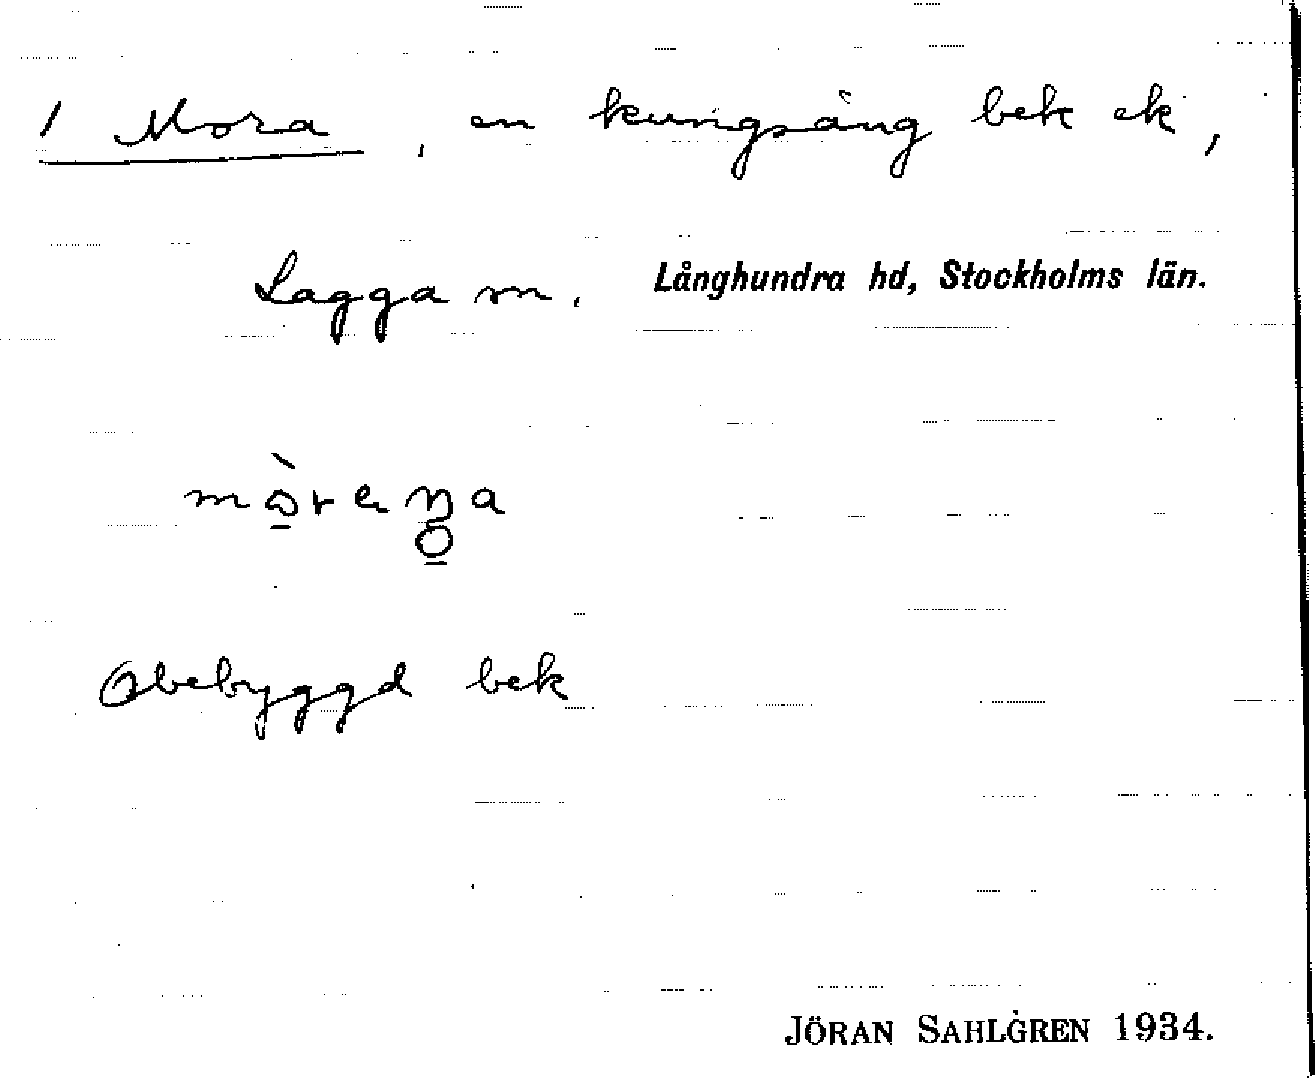 / Mora, en kungsäng bek ek,
Lagga sn. Långhundra hd, Stockholms län.
Obebyggd bek
JÖRAN SAHLGREN 1934.